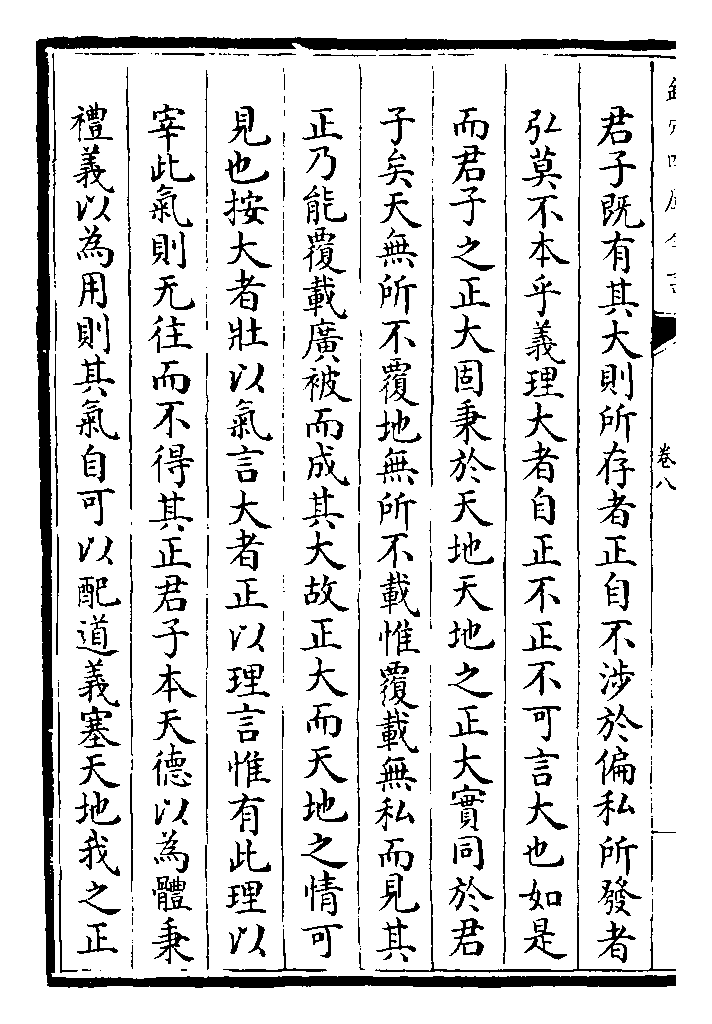 卷八
君子既有其大則所存者正自不涉於偏私所發者
弘莫不本乎義理大者自正不正不可言大也如是
而君子之正大固秉於天地天地之正大實同於君
子矣天無所不覆地無所不載惟覆載無私而見其
正乃能覆載廣被而成其大故正大而天地之情可
見也按大者壯以氣言大者正以理言惟有此理以
宰此氣則无往而不得其正君子本天德以為體秉
禮義以為用則其氣自可以配道義塞天地我之正